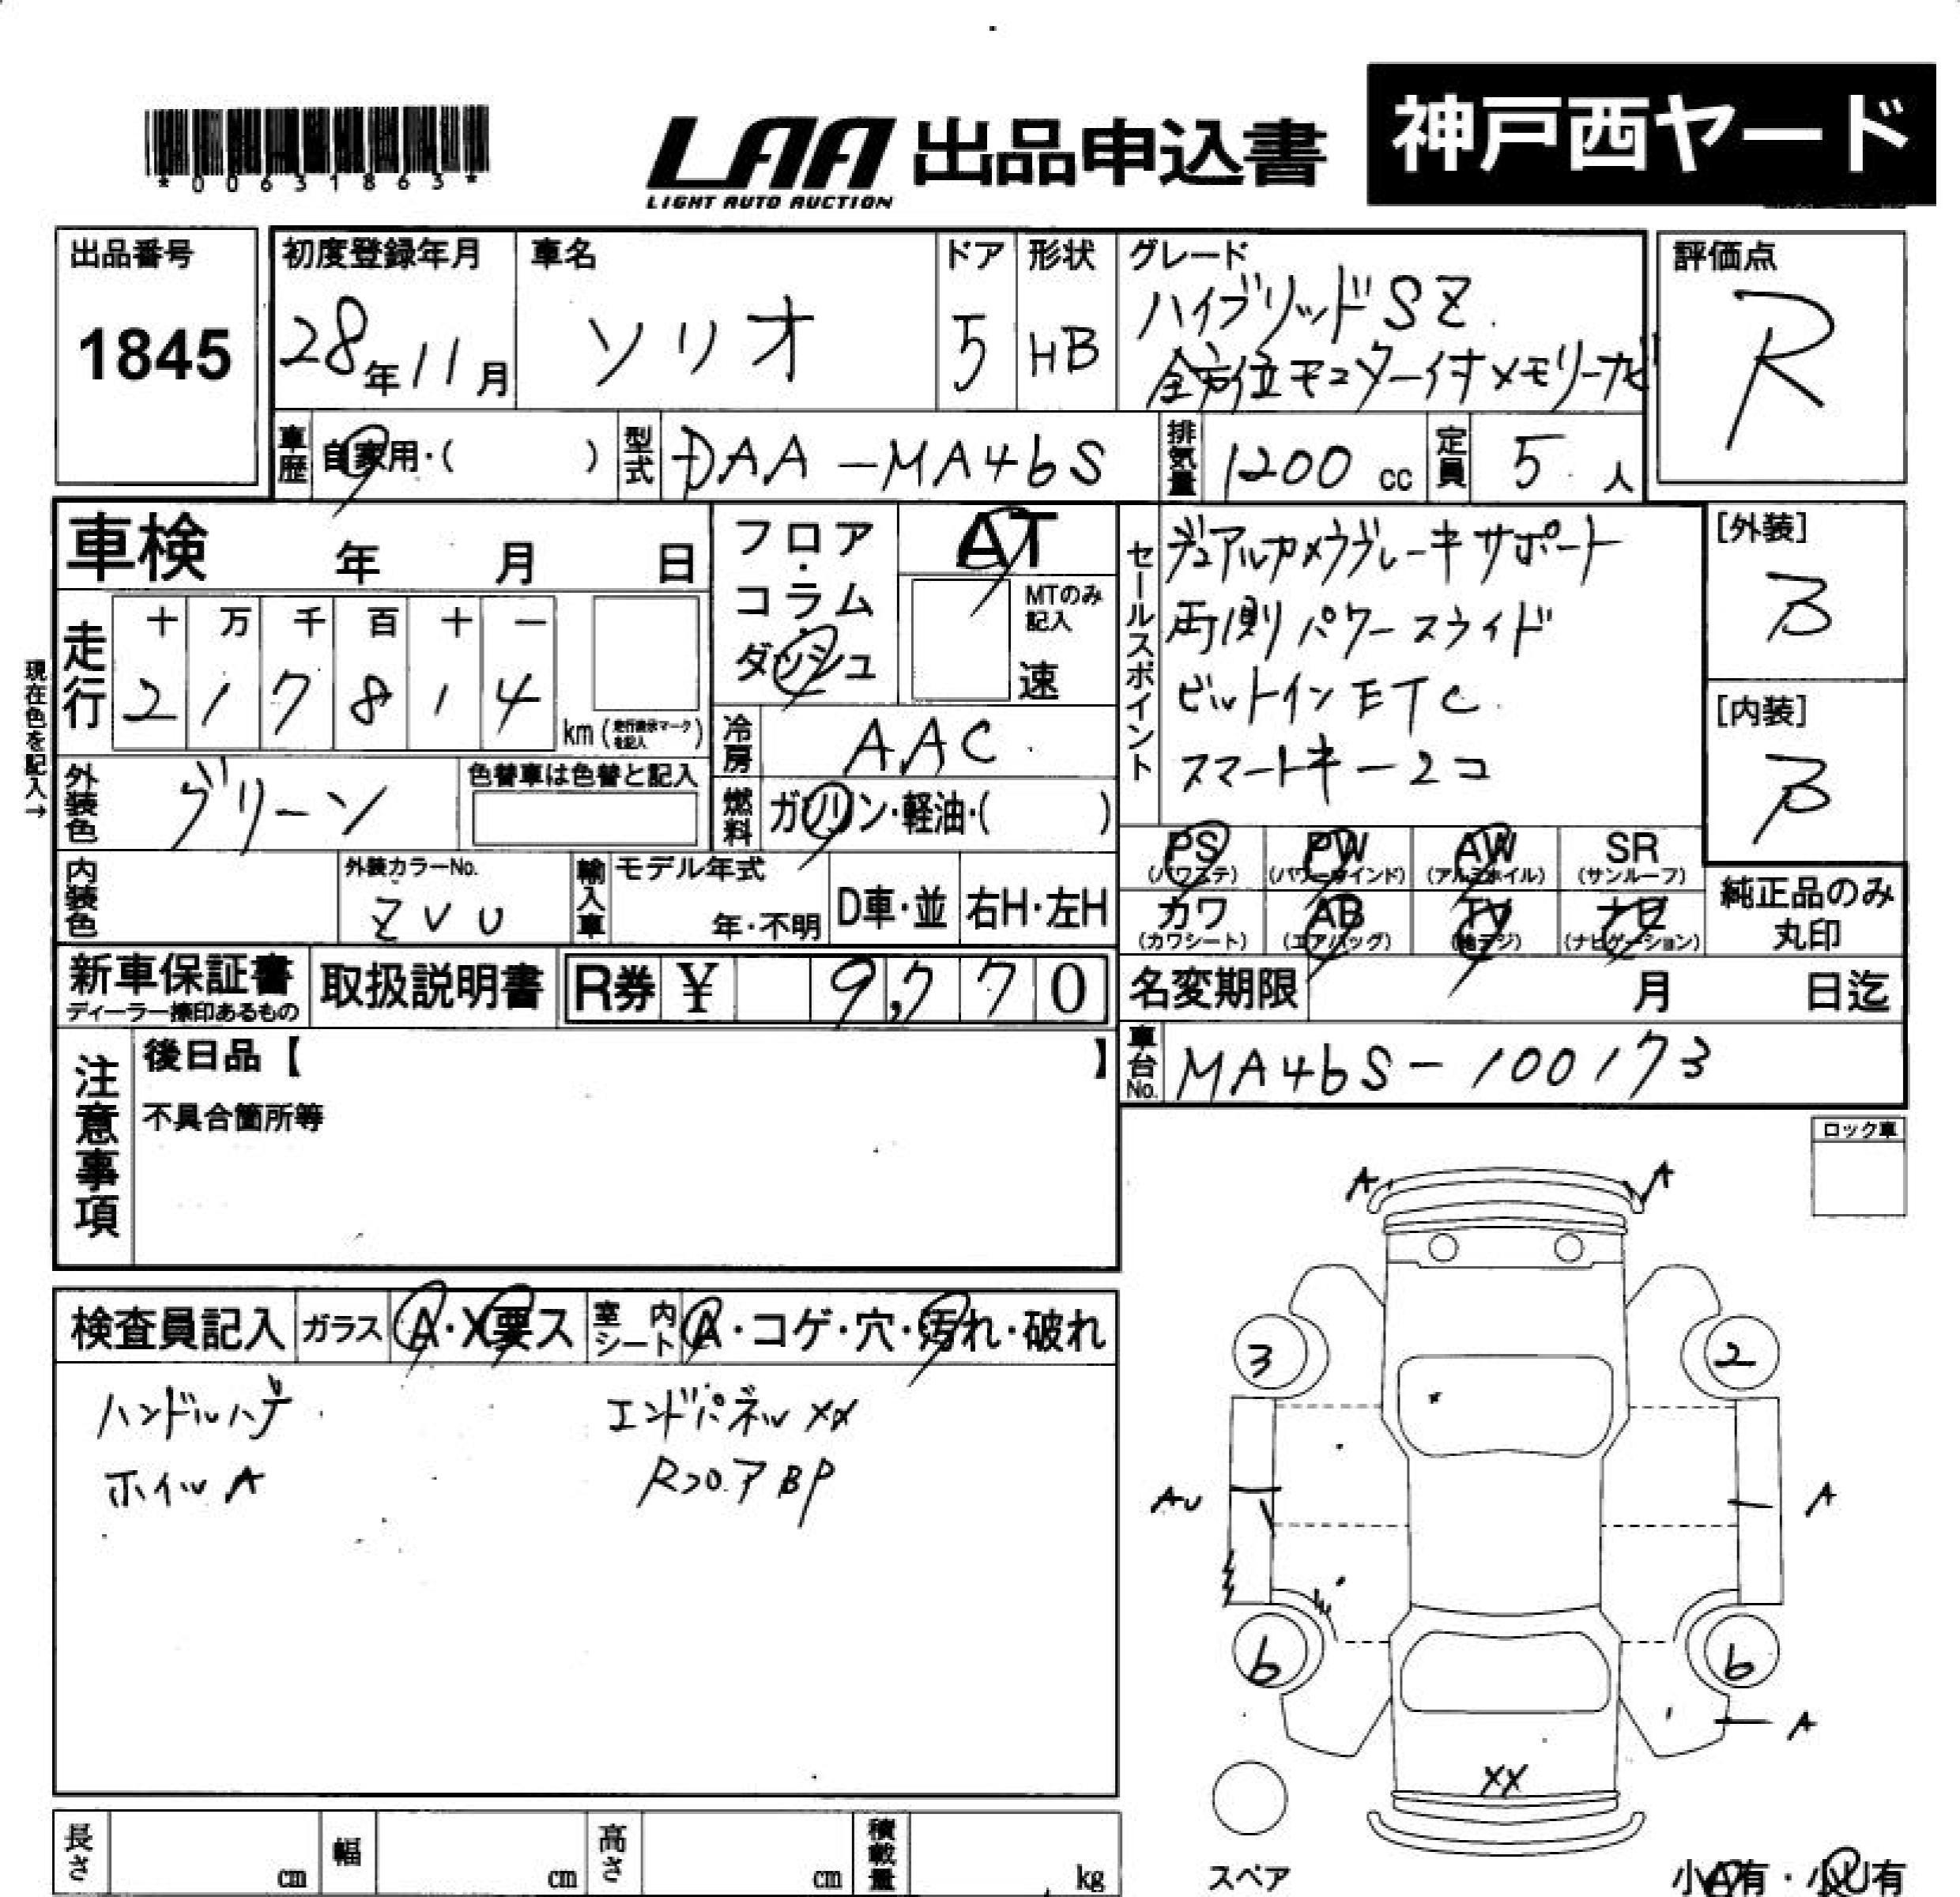 *00631863*
LAA 出品申込書 神戸西ヤード
LIGHT AUTO AUCTION
出品番号 1845
初度登録年月 28年11月
車名 ソリオ
ドア 5
形状 HB
グレード ハイブリッドSZ
全方位モニター付メモリーナビ
評価点 R
車歴 自家用・( )
型式 DAA-MA46S
排気量 1200 cc
定員 5 人
車検 年 月 日
フロア・コラム・ダッシュ
AT
MTのみ記入
速
セールスポイント
デュアルカメラブレーキサポート
両側パワースライド
ビルトインETC
スマートキー2コ
[外装] B
[内装] B
現在色を記入→
走行
十 万 千 百 十 一
2 1 7 8 1 4
km (走行表示マークを記入)
冷房 AAC
外装色 グリーン
色替車は色替と記入
燃料 ガソリン・軽油・( )
PS (パワステ)
PW (パワーウインド)
AW (アルミホイル)
SR (サンルーフ)
カワ (カワシート)
AB (エアバッグ)
TV (地デジ)
ナビ (ナビゲーション)
純正品のみ丸印
内装色
外装カラーNo. ZVU
輸入車
モデル年式
年・不明
D車・並
右H・左H
新車保証書
ディーラー捺印あるもの
取扱説明書
R券 ¥ 9,770
名変期限 月 日迄
車台No. MA46S-100173
注意事項
後日品【 】
不具合箇所等
ロック車
検査員記入
ガラス A・X要ス
室内シート A・コゲ・穴・汚れ・破れ
ハンドルハゲ
エンドパネルXX
ホイルA
RフロアBP
A A
3 2
AU A
6 6
A
XX
スペア
小A有・小U有
長さ cm
幅 cm
高さ cm
積載量 kg